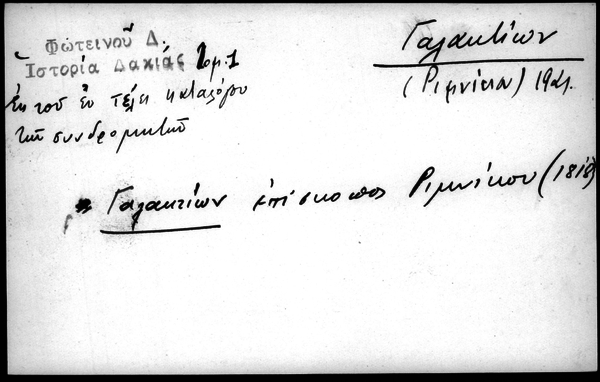 Φωτεινοῦ Δ.
Ἱστορία Δακίας Τομ. 1
Ἐκ τοῦ ἐν τέλει καταλόγου
τῶν συνδρομητῶν
Γαλακτίων
(Ριμνίκου)
Γαλακτίων ἐπίσκοπος Ριμνίκου (1818)